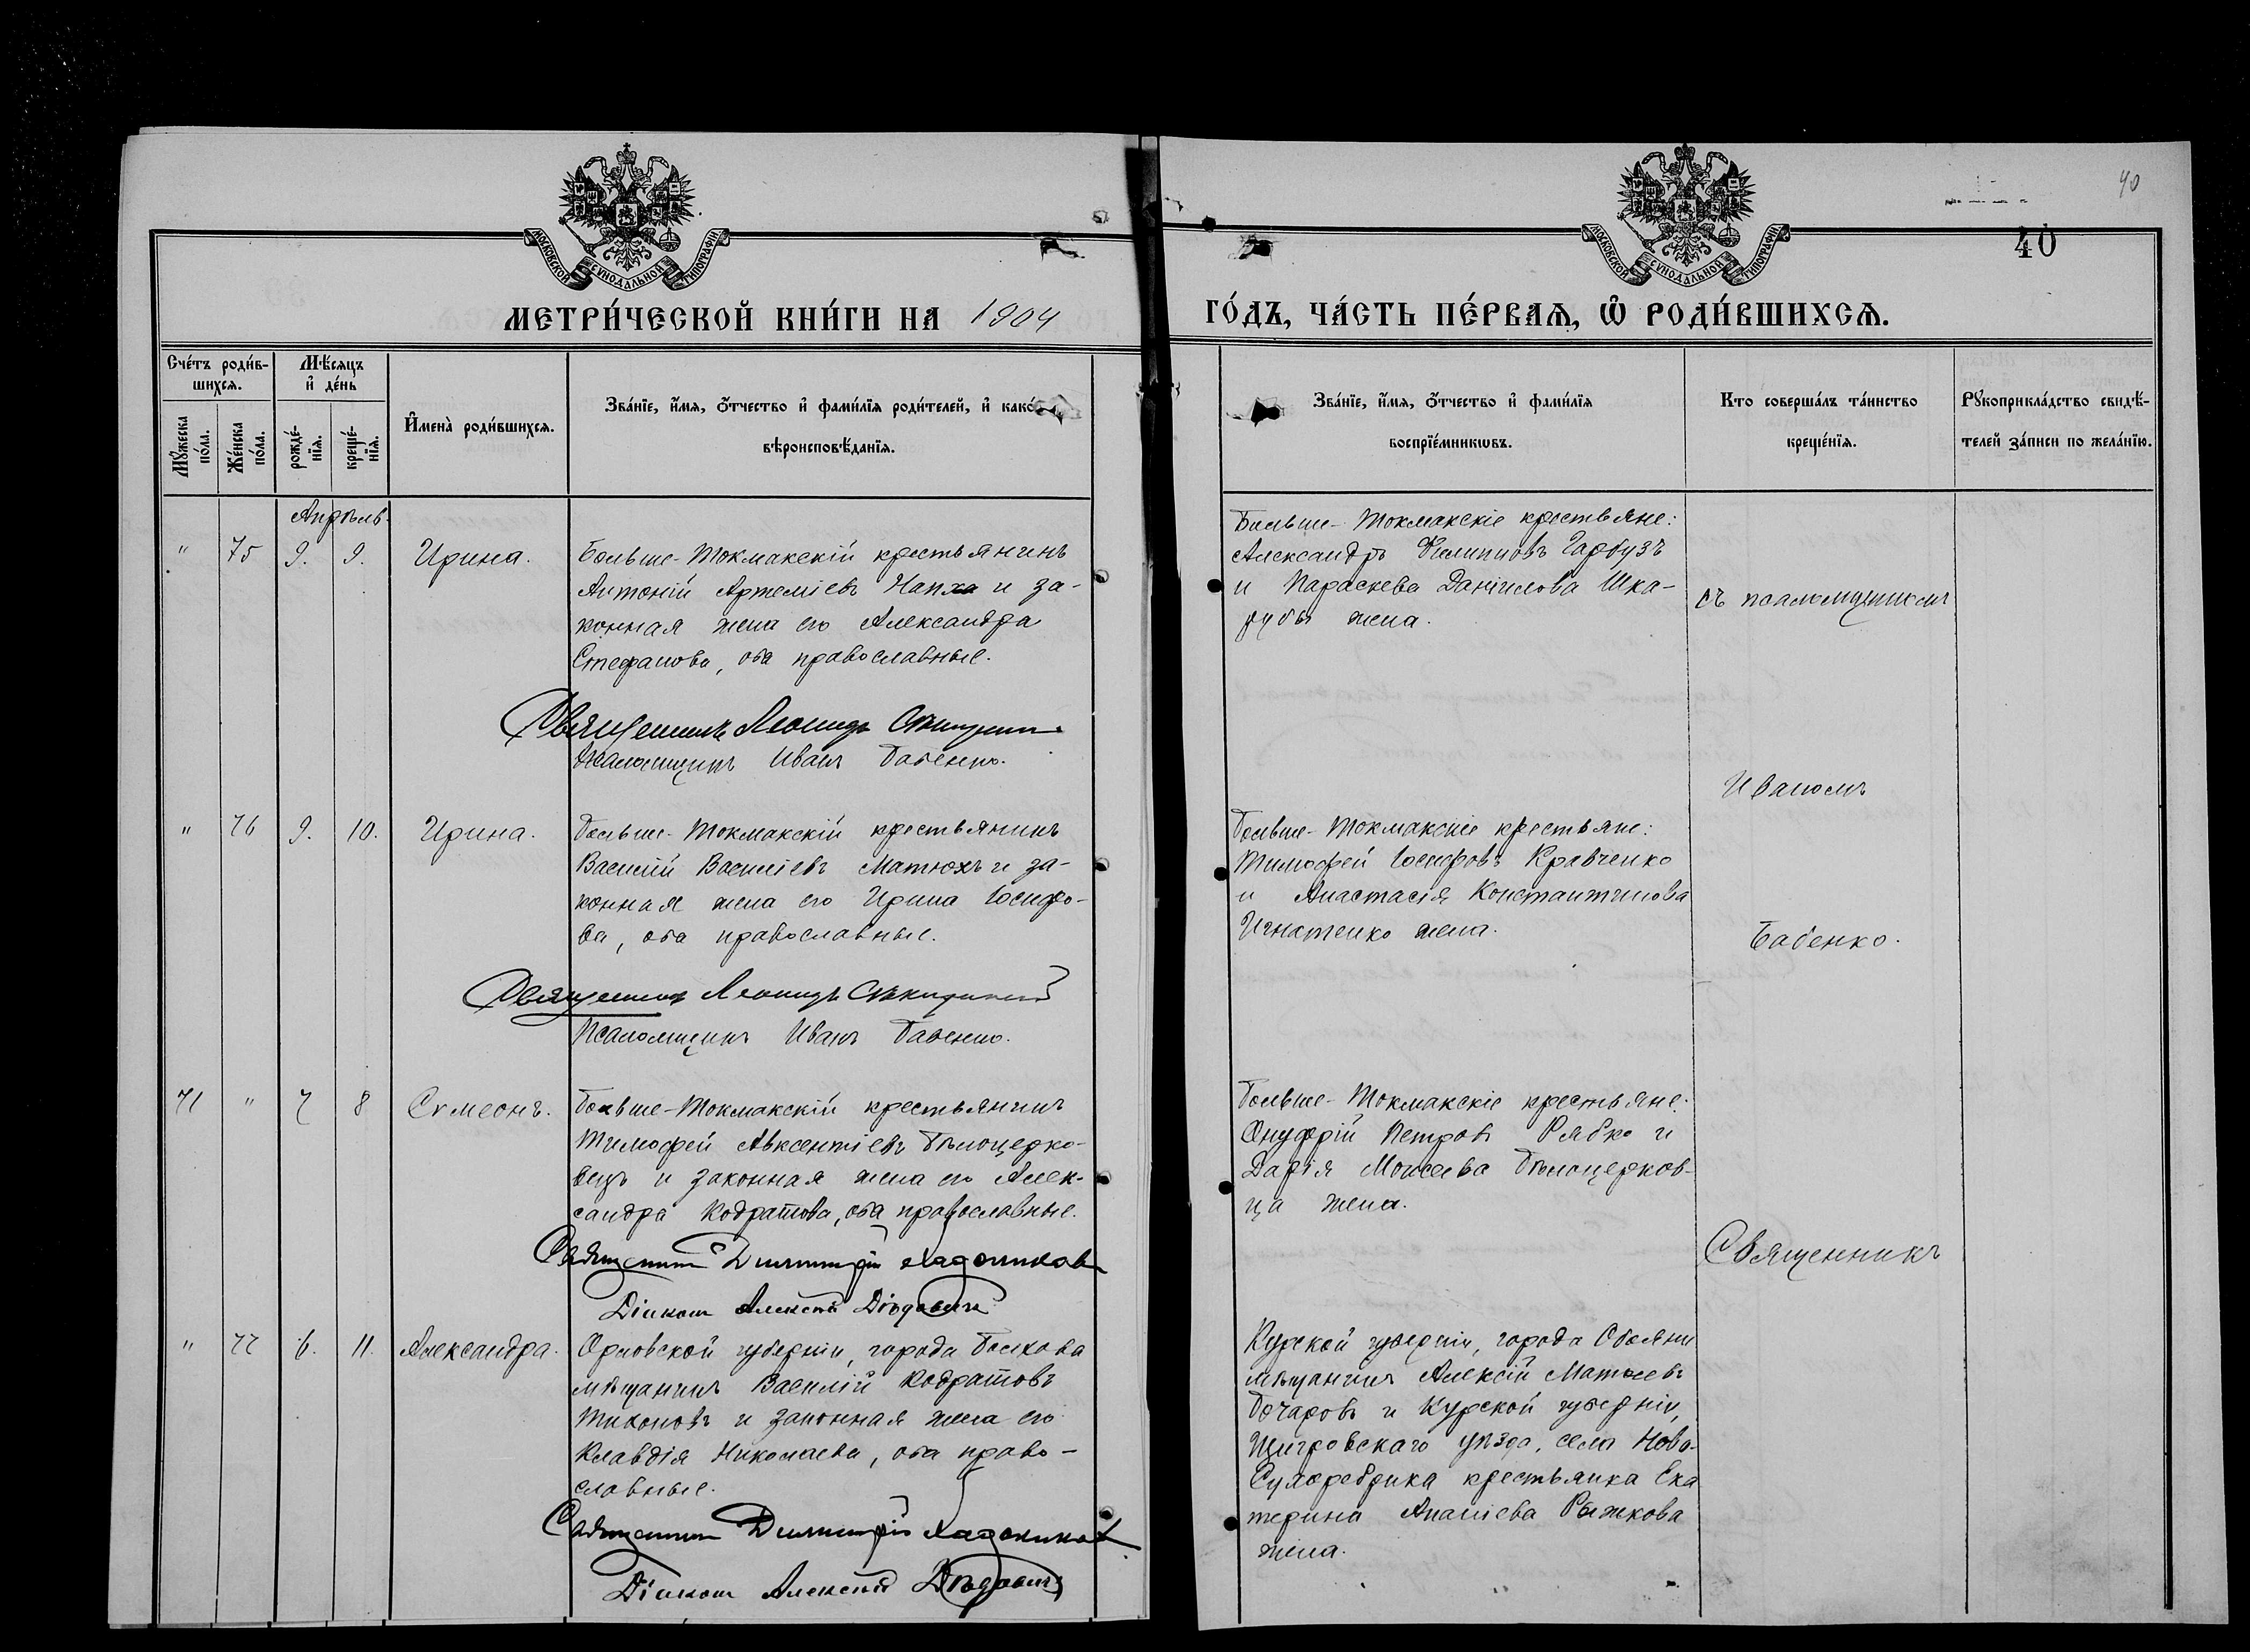 40
40
МОСКОВСКОЙ СѴНОДАЛЬНОЙ ТИПОГРАФІИ
МОСКОВСКОЙ СѴНОДАЛЬНОЙ ТИПОГРАФІИ
МЕТРИ́ЧЕСКОЙ КНИ́ГИ НА 1904
ГО́ДЪ, ЧА́СТЬ ПЕ́РВАѦ, Ѡ҆ РОДИ́ВШИХСѦ.
Сче́тъ роди́в-
шихсѧ.
Мꙋ́жеска по́ла.
Же́нска по́ла.
Мѣ́сѧцъ
и҆ де́нь
рожде́-
нїѧ.
креще́-
нїѧ.
И҆мена̀ роди́вшихсѧ.
Зва́нїе, и҆́мѧ, ѻ҆́тчество и҆ фами́лїѧ роди́телей, и҆ како́
вѣроисповѣ́данїѧ.
Зва́нїе, и҆́мѧ, ѻ҆́тчество и҆ фами́лїѧ
воспрїе́мникѡвъ.
Кто соверша́лъ та́инство
креще́нїѧ.
Рꙋкоприкла́дство свидѣ́-
телей за́писи по жела́нїю.
Апрѣль.
" 75 9. 9. Ирина.
Больше-Токмакскій крестьянинъ
Антоній Артеміевъ Напха и за-
конная жена его Александра
Стефанова, оба православные.
Священникъ Леонидъ
Псаломщикъ Иванъ Бабенко.
Больше-Токмакскіе крестьяне:
Александръ Филипповъ Гарбузъ
и Параскева Даніилова Шка-
рубы жена.
съ псаломщикомъ
Иваномъ
Бабенко.
" 76 9. 10. Ирина.
Больше-Токмакскій крестьянинъ
Василій Василіевъ Матюхъ и за-
конная жена его Ирина Іосифо-
ва, оба православные.
Священникъ Леонидъ
Псаломщикъ Иванъ Бабенко.
Больше-Токмакскіе крестьяне:
Тимофей Іосифовъ Кравченко
и Анастасія Константинова
Игнатенко жена.
71 " 7 8 Сѵмеонъ.
Больше-Токмакскій крестьянинъ
Тимофей Авксентіевъ Бѣлоцерко-
вецъ и законная жена его Алек-
сандра Кодратова, оба православные.
Священникъ Димитрій
Діаконъ Алексѣй Дѣдовичъ
Больше-Токмакскіе крестьяне:
Онуфрій Петровъ Рябко и
Дарія Моисеева Бѣлоцерков-
ца жена.
Священникъ
" 77 6. 11. Александра.
Орловской губерніи, города Болхова
мѣщанинъ Василій Кодратовъ
Тихоновъ и законная жена его
Клавдія Николаева, оба право-
славные.
Священникъ Димитрій
Діаконъ Алексѣй Дѣдовичъ
Курской губерніи, города Обояни
мѣщанинъ Алексій Матѳеевъ
Бочаровъ и Курской губерніи,
Щигровскаго уѣзда, села Ново-
крестьянка Ека
терина Рыжкова
жена.